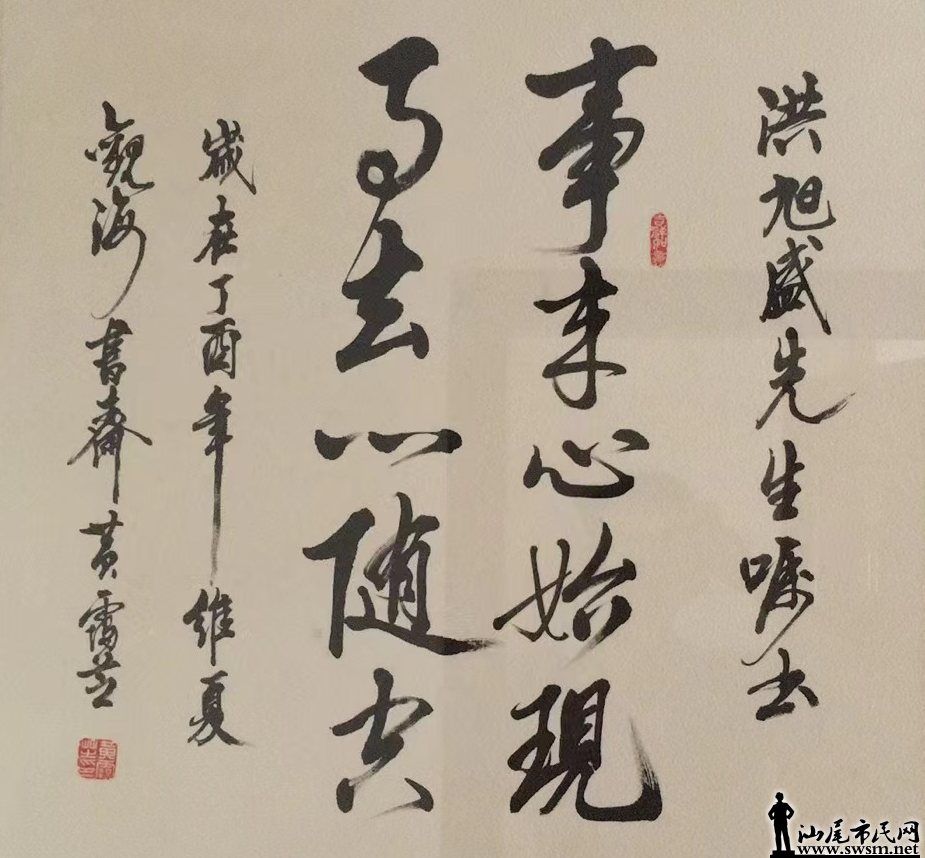 洪旭盛先生嘱书
事来心始現
事去心随空
歲在丁酉年維夏
觀海書齋黄
汕尾市民网
www.swsm.net